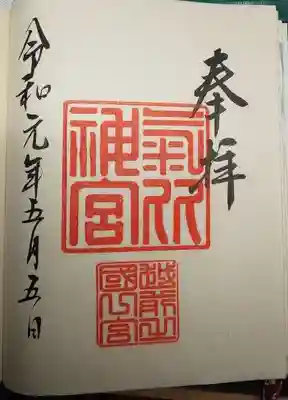 奉拝
氣比
神宮
越前之
國一宮
令和元年五月五日